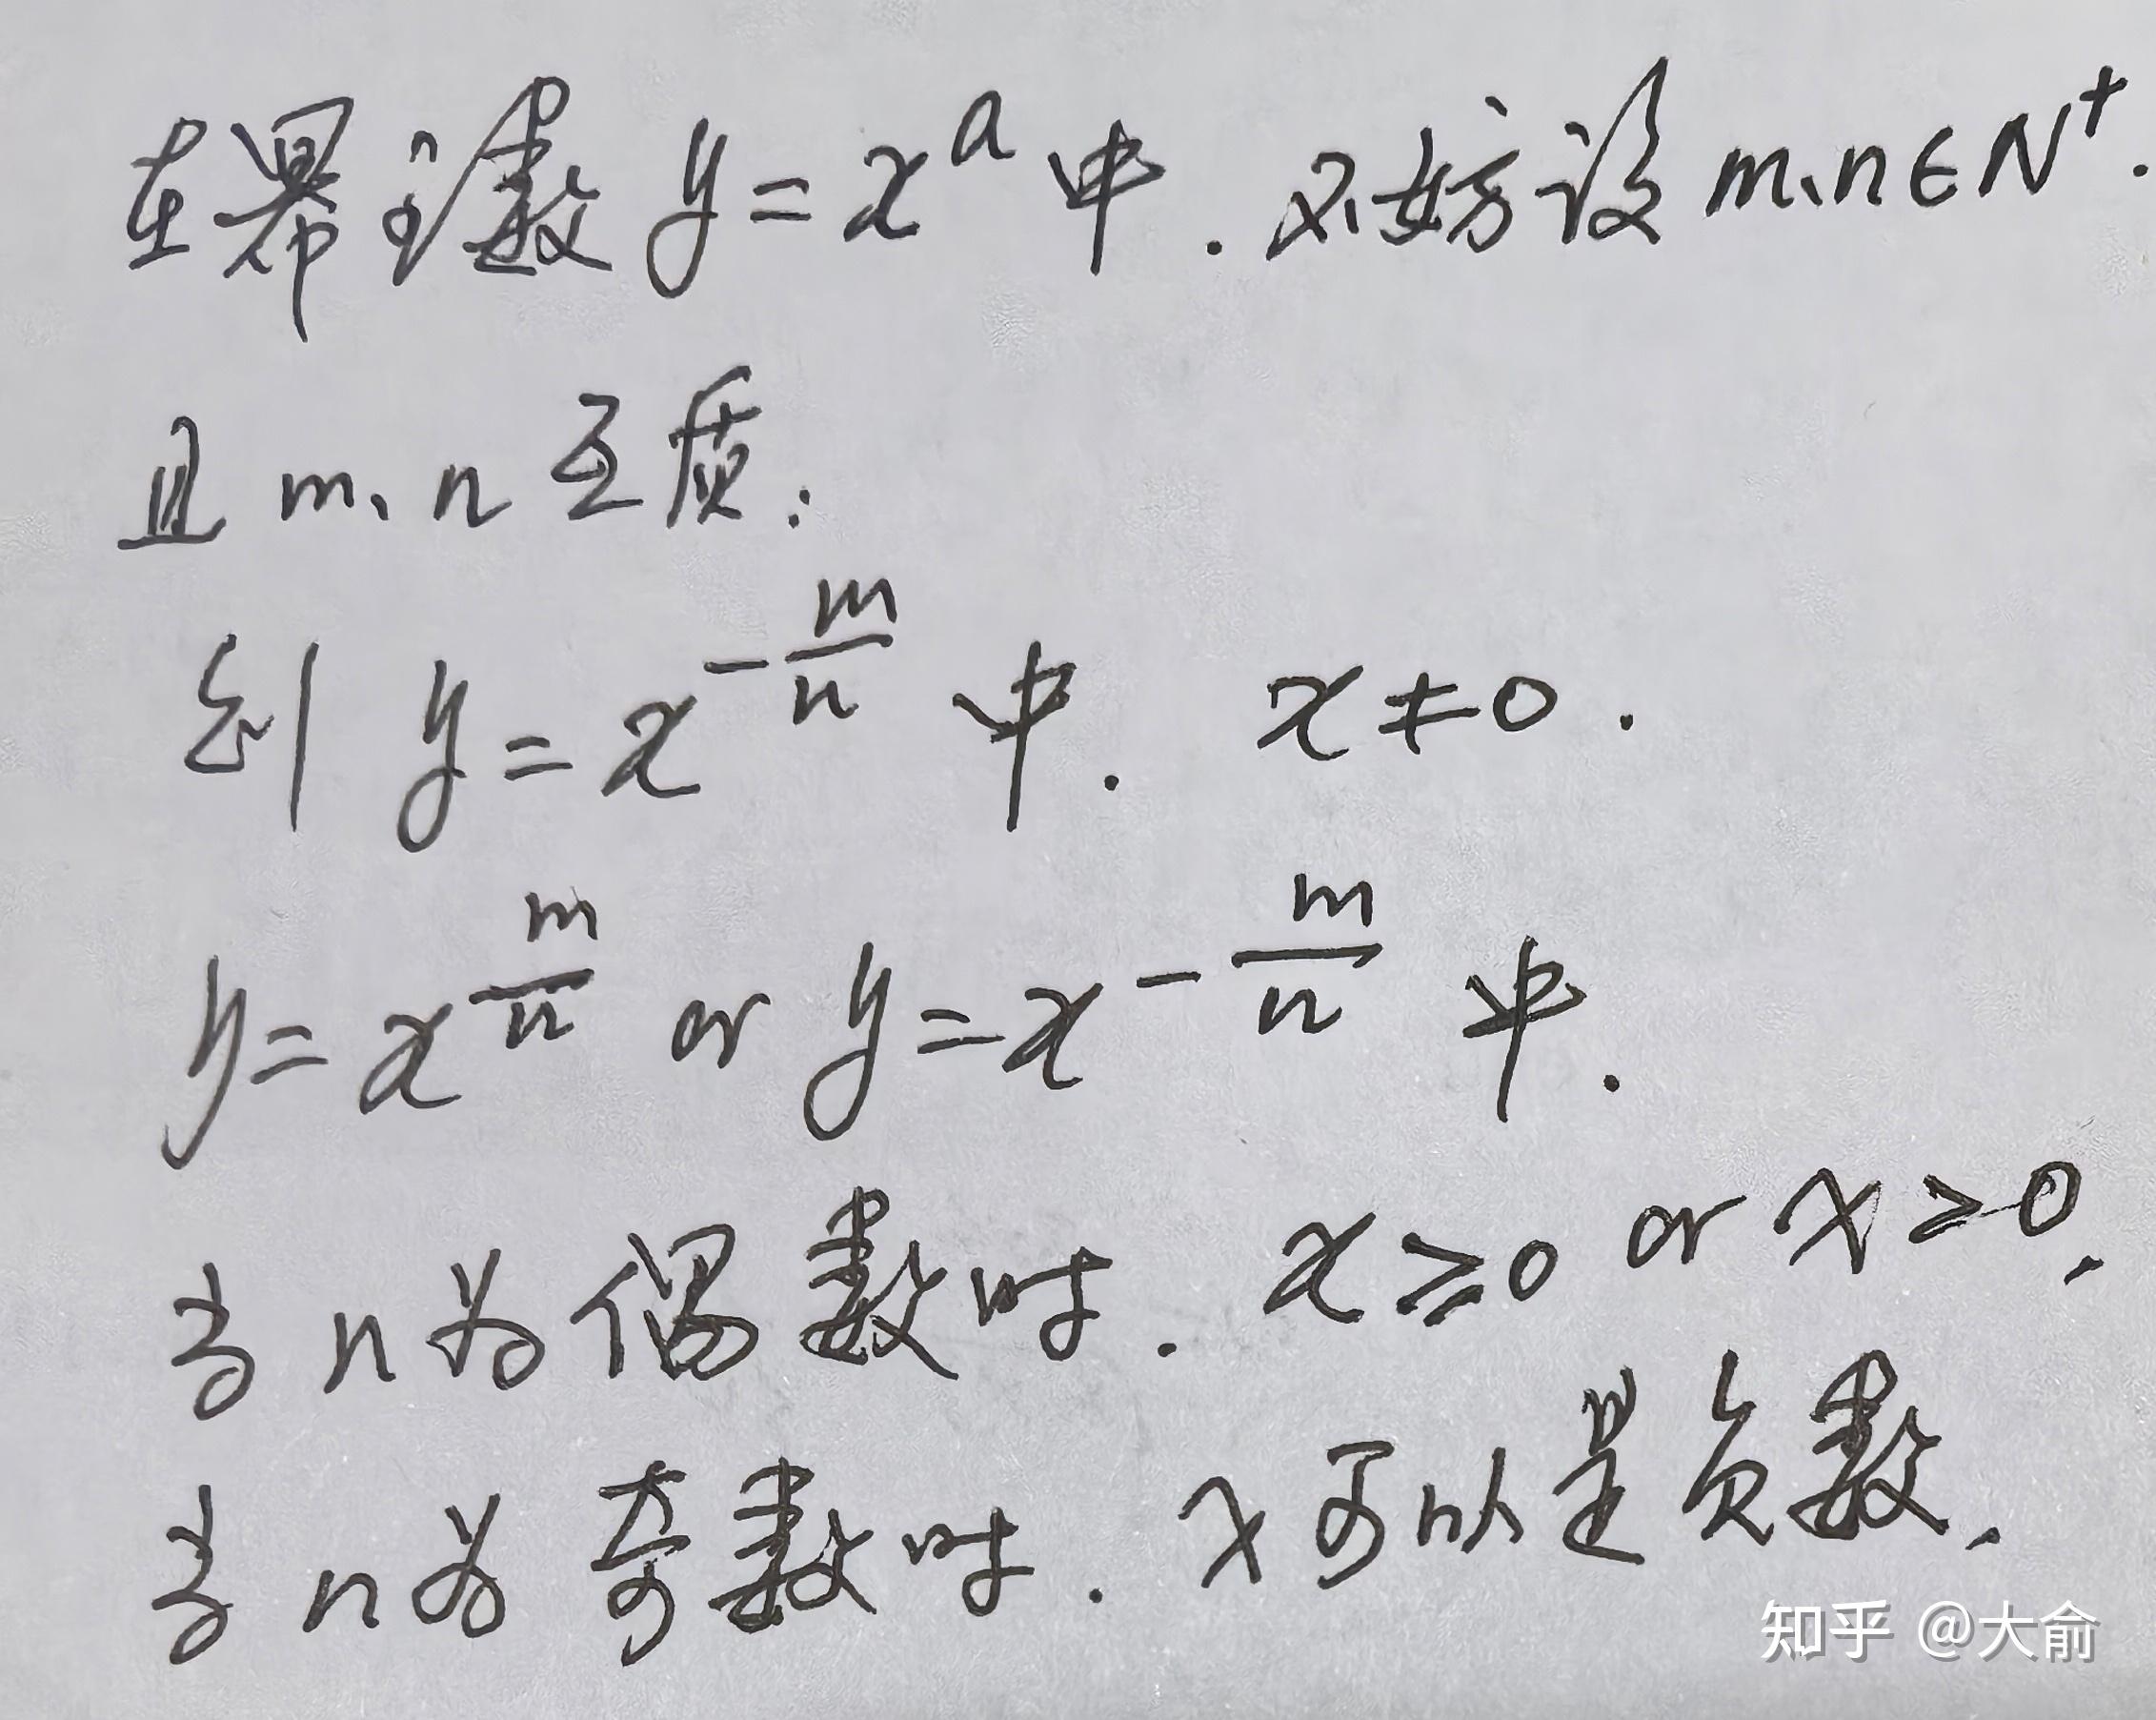 在幂函数 y=x^a 中. 不妨设 m、n∈N⁺.
且 m、n 互质:
则 y=x^{-m/n} 中. x≠0.
y=x^{m/n} or y=x^{-m/n} 中.
当 n 为偶数时. x⩾0 or x>0.
当 n 为奇数时. x 可以是负数.
知乎 @大俞